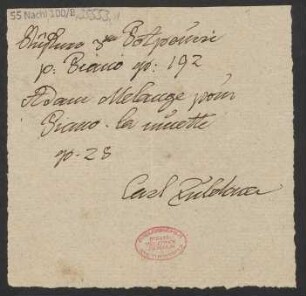 55 Nachl 100/B
3me Potpouri
p: Piano op: 192
Adam Melange pour
Piano. la muette
op. 28
Carl